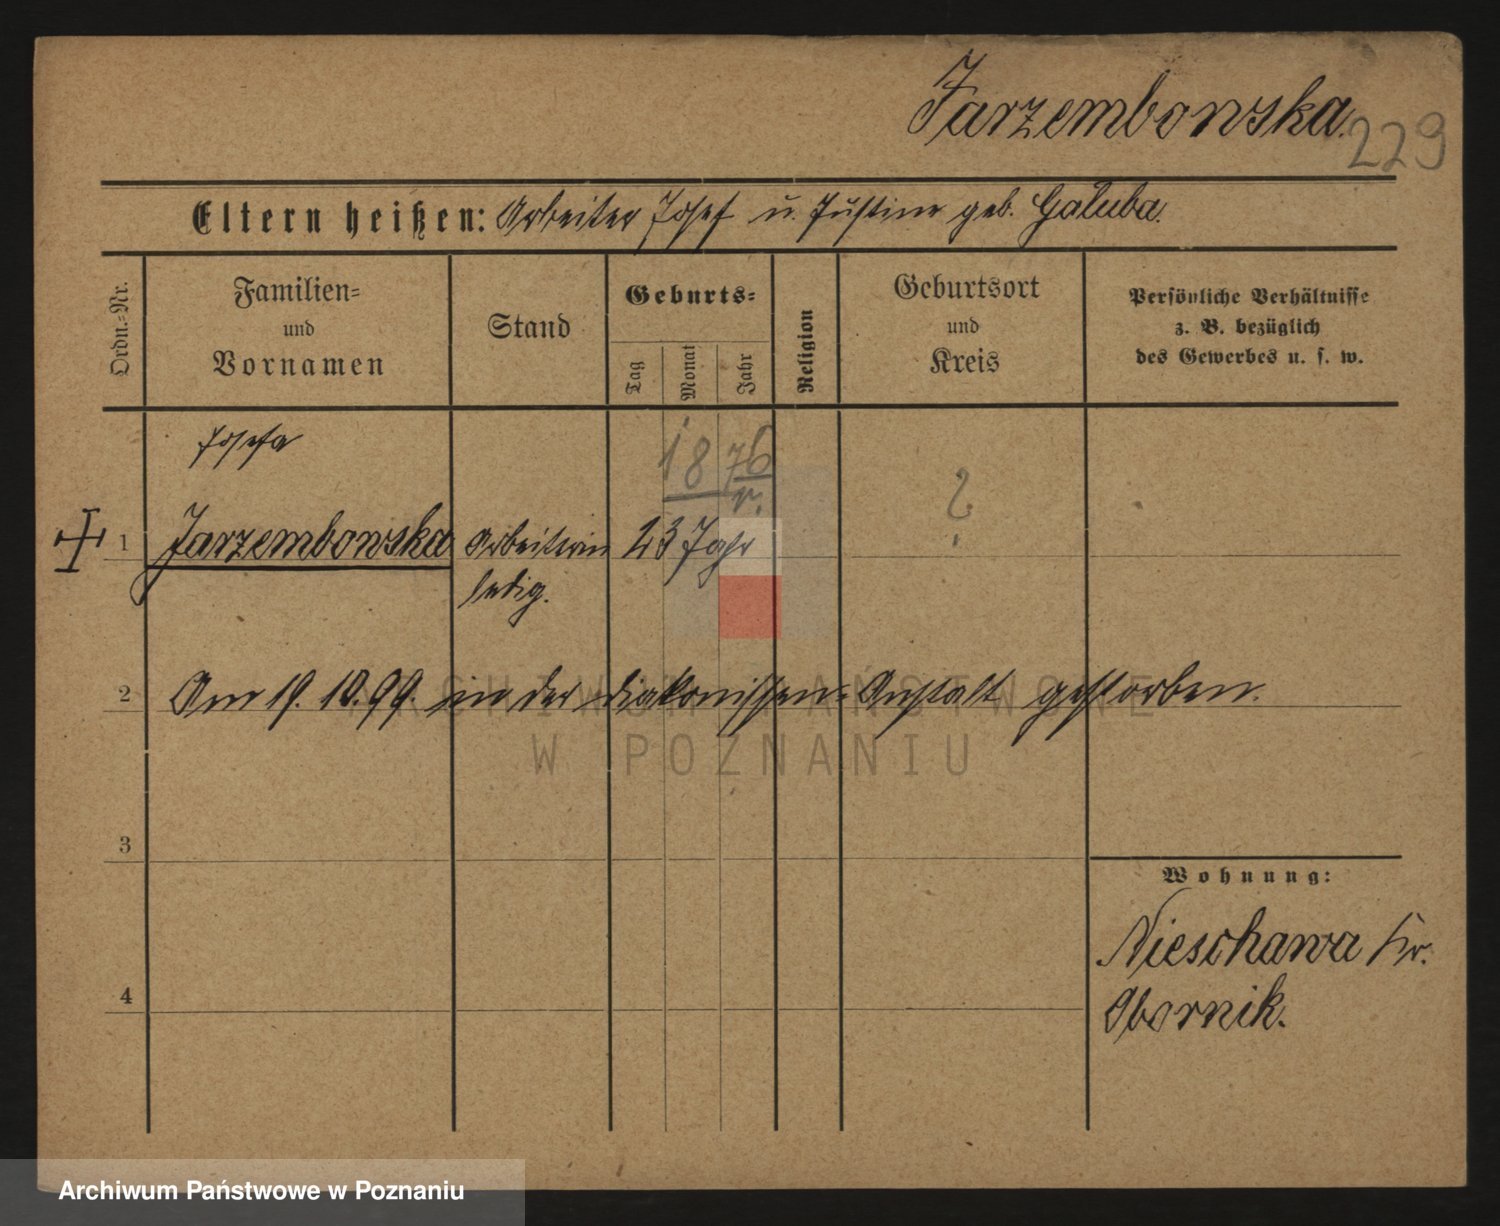 Jarzembowska.
229
Eltern heißen: Arbeiter Josef u. Justine geb. Galuba.
Ordn.-Nr.
Familien-
und
Vornamen
Stand
Geburts-
Tag
Monat
Jahr
Religion
Geburtsort
und
Kreis
Persönliche Verhältnisse
z. B. bezüglich
des Gewerbes u. s. w.
Josefa
1876
?
1 Jarzembowska Arbeiterin 23 Jahr
ledig.
2 Am 19. 10. 99. in der Diakonissen-Anstalt gestorben.
ARCHIWUM PAŃSTWOWE
W POZNANIU
3
Wohnung:
Nieschawa Kr.
4
Obornik.
Archiwum Państwowe w Poznaniu